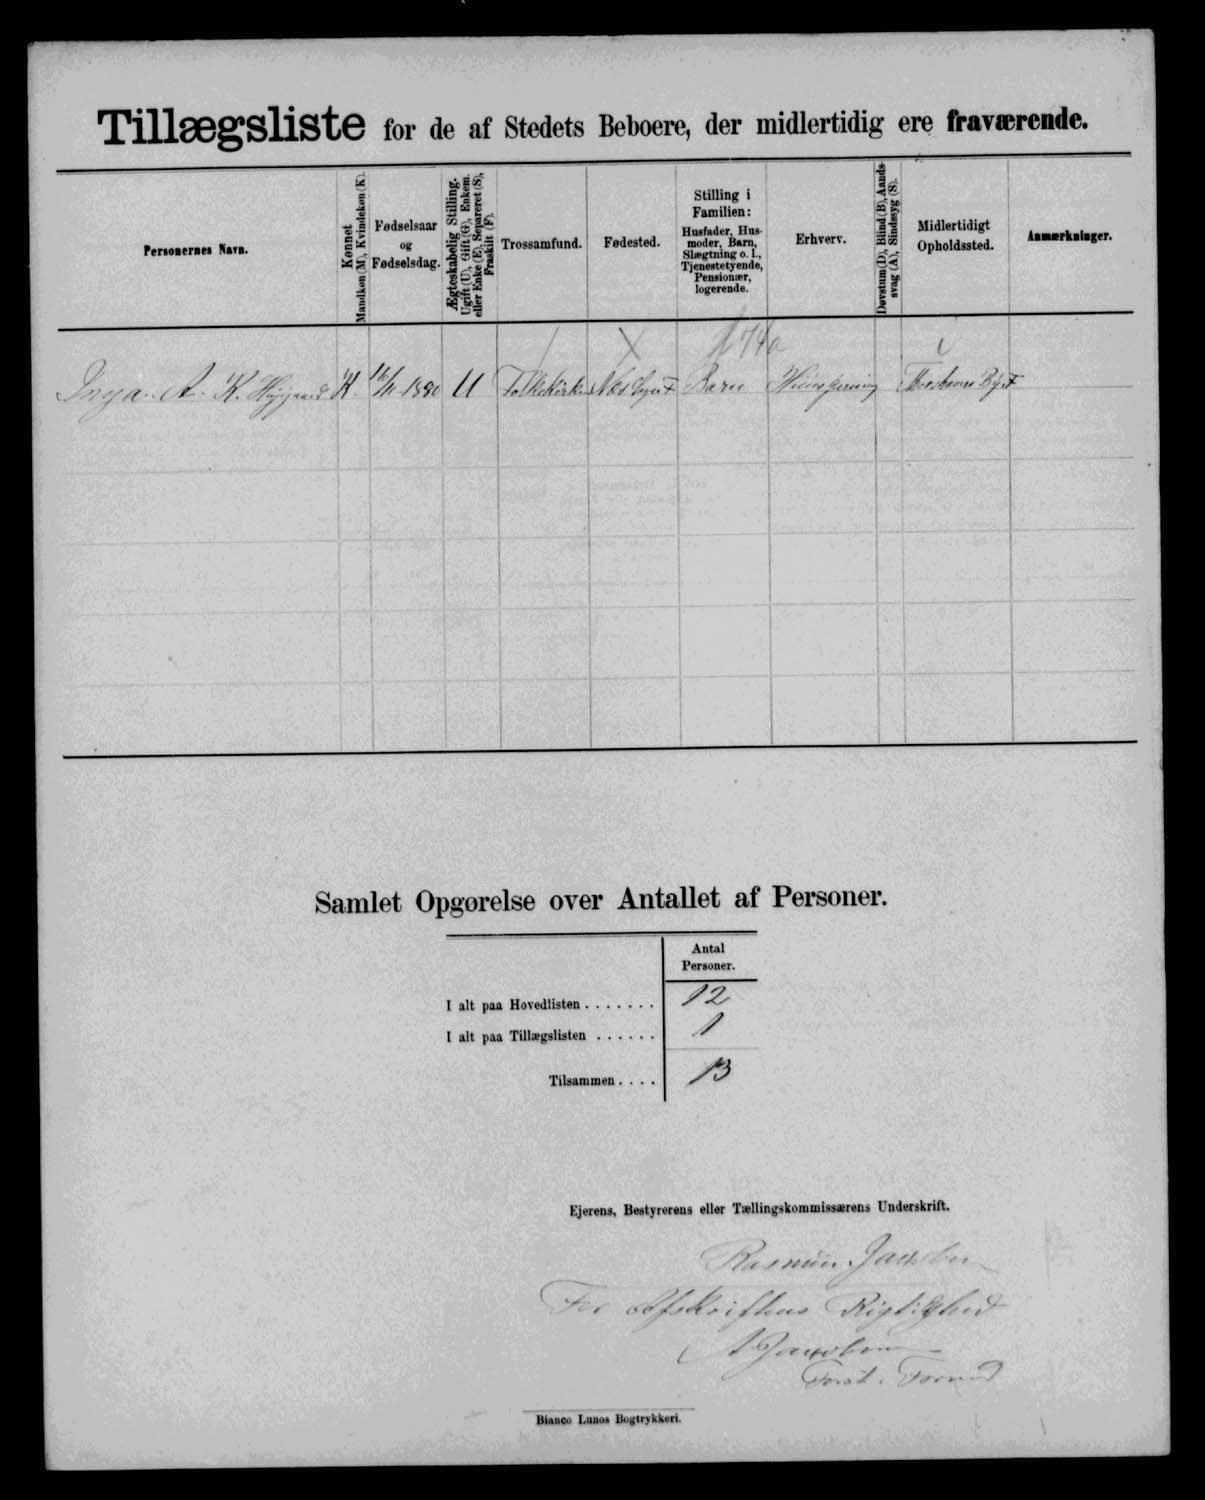 Tillægsliste for de af Stedets Beboere, der midlertidig ere fraværende.
Personernes Navn.
Kønnet
Mandkøn (M), Kvindekøn (K).
Fødselsaar
og
Fødselsdag.
Ægteskabelig Stilling.
Ugift (U), Gift (G), Enkem.
eller Enke (E), Separeret (S),
Fraskilt (F).
Trossamfund.
Fødested.
Stilling i
Familien:
Husfader, Hus-
moder, Barn,
Slægtning o. l.,
Tjenestetyende,
Pensionær,
logerende.
Erhverv.
Døvstum (D), Blind (B), Aands-
svag (A), Sindssyg (S).
Midlertidigt
Opholdssted.
Anmærkninger.
Inga. A. K. Højgaard K. 16/11 1880 U Folkekirken Næs Barn
Samlet Opgørelse over Antallet af Personer.
Antal
Personer.
I alt paa Hovedlisten . . . . . . . 12
I alt paa Tillægslisten . . . . . . 1
Tilsammen . . . . 13
Ejerens, Bestyrerens eller Tællingskommissærens Underskrift.
Jacobsen
For Afskriftens Rigtighed
Jacobsen
Bianco Lunos Bogtrykkeri.